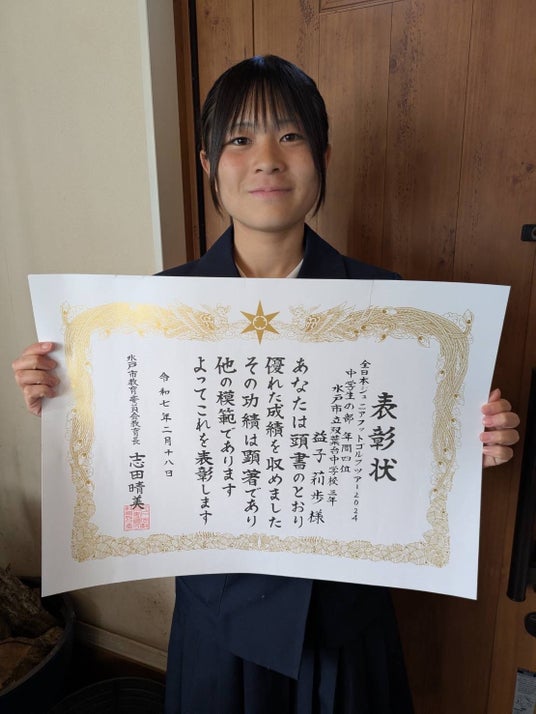 表彰状
全日本ジュニアフットゴルフツアー2024
中学生の部 年間四位
水戸市立双葉台中学校 三年
益子 莉歩 様
あなたは頭書のとおり
優れた成績を収めました
その功績は顕著であり
他の模範であります
よってこれを表彰します
令和七年二月十八日
水戸市教育委員会教育長 志田晴美